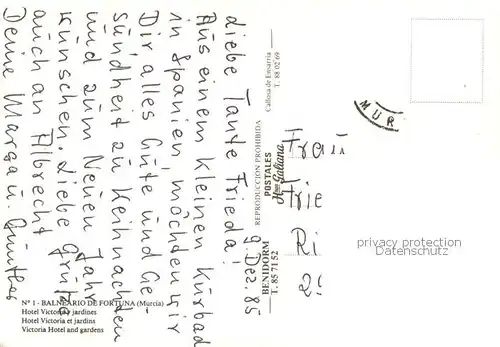 9. Dez. 85
Liebe Tante Frieda!
Aus einem kleinen Kurbad
in Spanien, möchten wir
Dir alles Gute und Ge-
sundheit zu Weihnachten
und zum Neuen Jahr
wünschen. Liebe Grüße
auch an Albrecht
Deine Marga u. Günther
Nº 1 - BALNEARIO DE FORTUNA (Murcia)
Hotel Victoria y jardines
Hotel Victoria et jardins
Victoria Hotel and gardens
BENIDORM
T. 85 71 52
POSTALES
Hnos Galiana
Callosa de Ensarria
T. 88 02 69
REPRODUCCION PROHIBIDA
MUR
Frau
Frie
Ri
privacy protection
Datenschutz